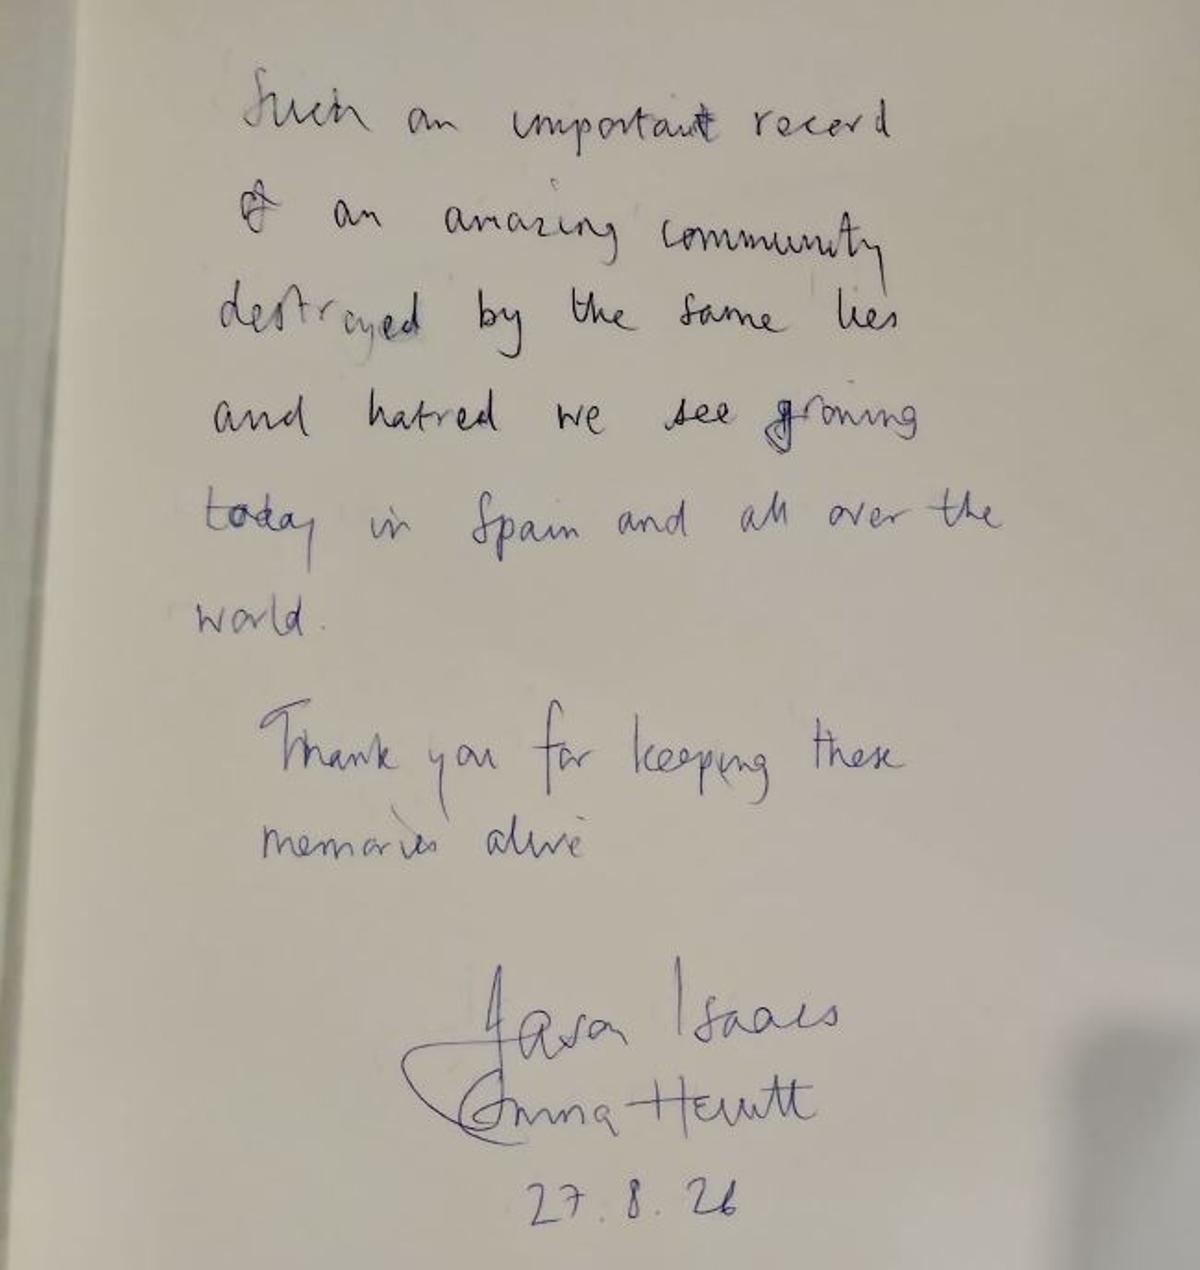 Such an important record
of an amazing community
destroyed by the same lies
and hatred we see growing
today in Spain and all over the
world.
Thank you for keeping these
memories alive
Jason Isaacs
Emma Hewitt
27.8.26